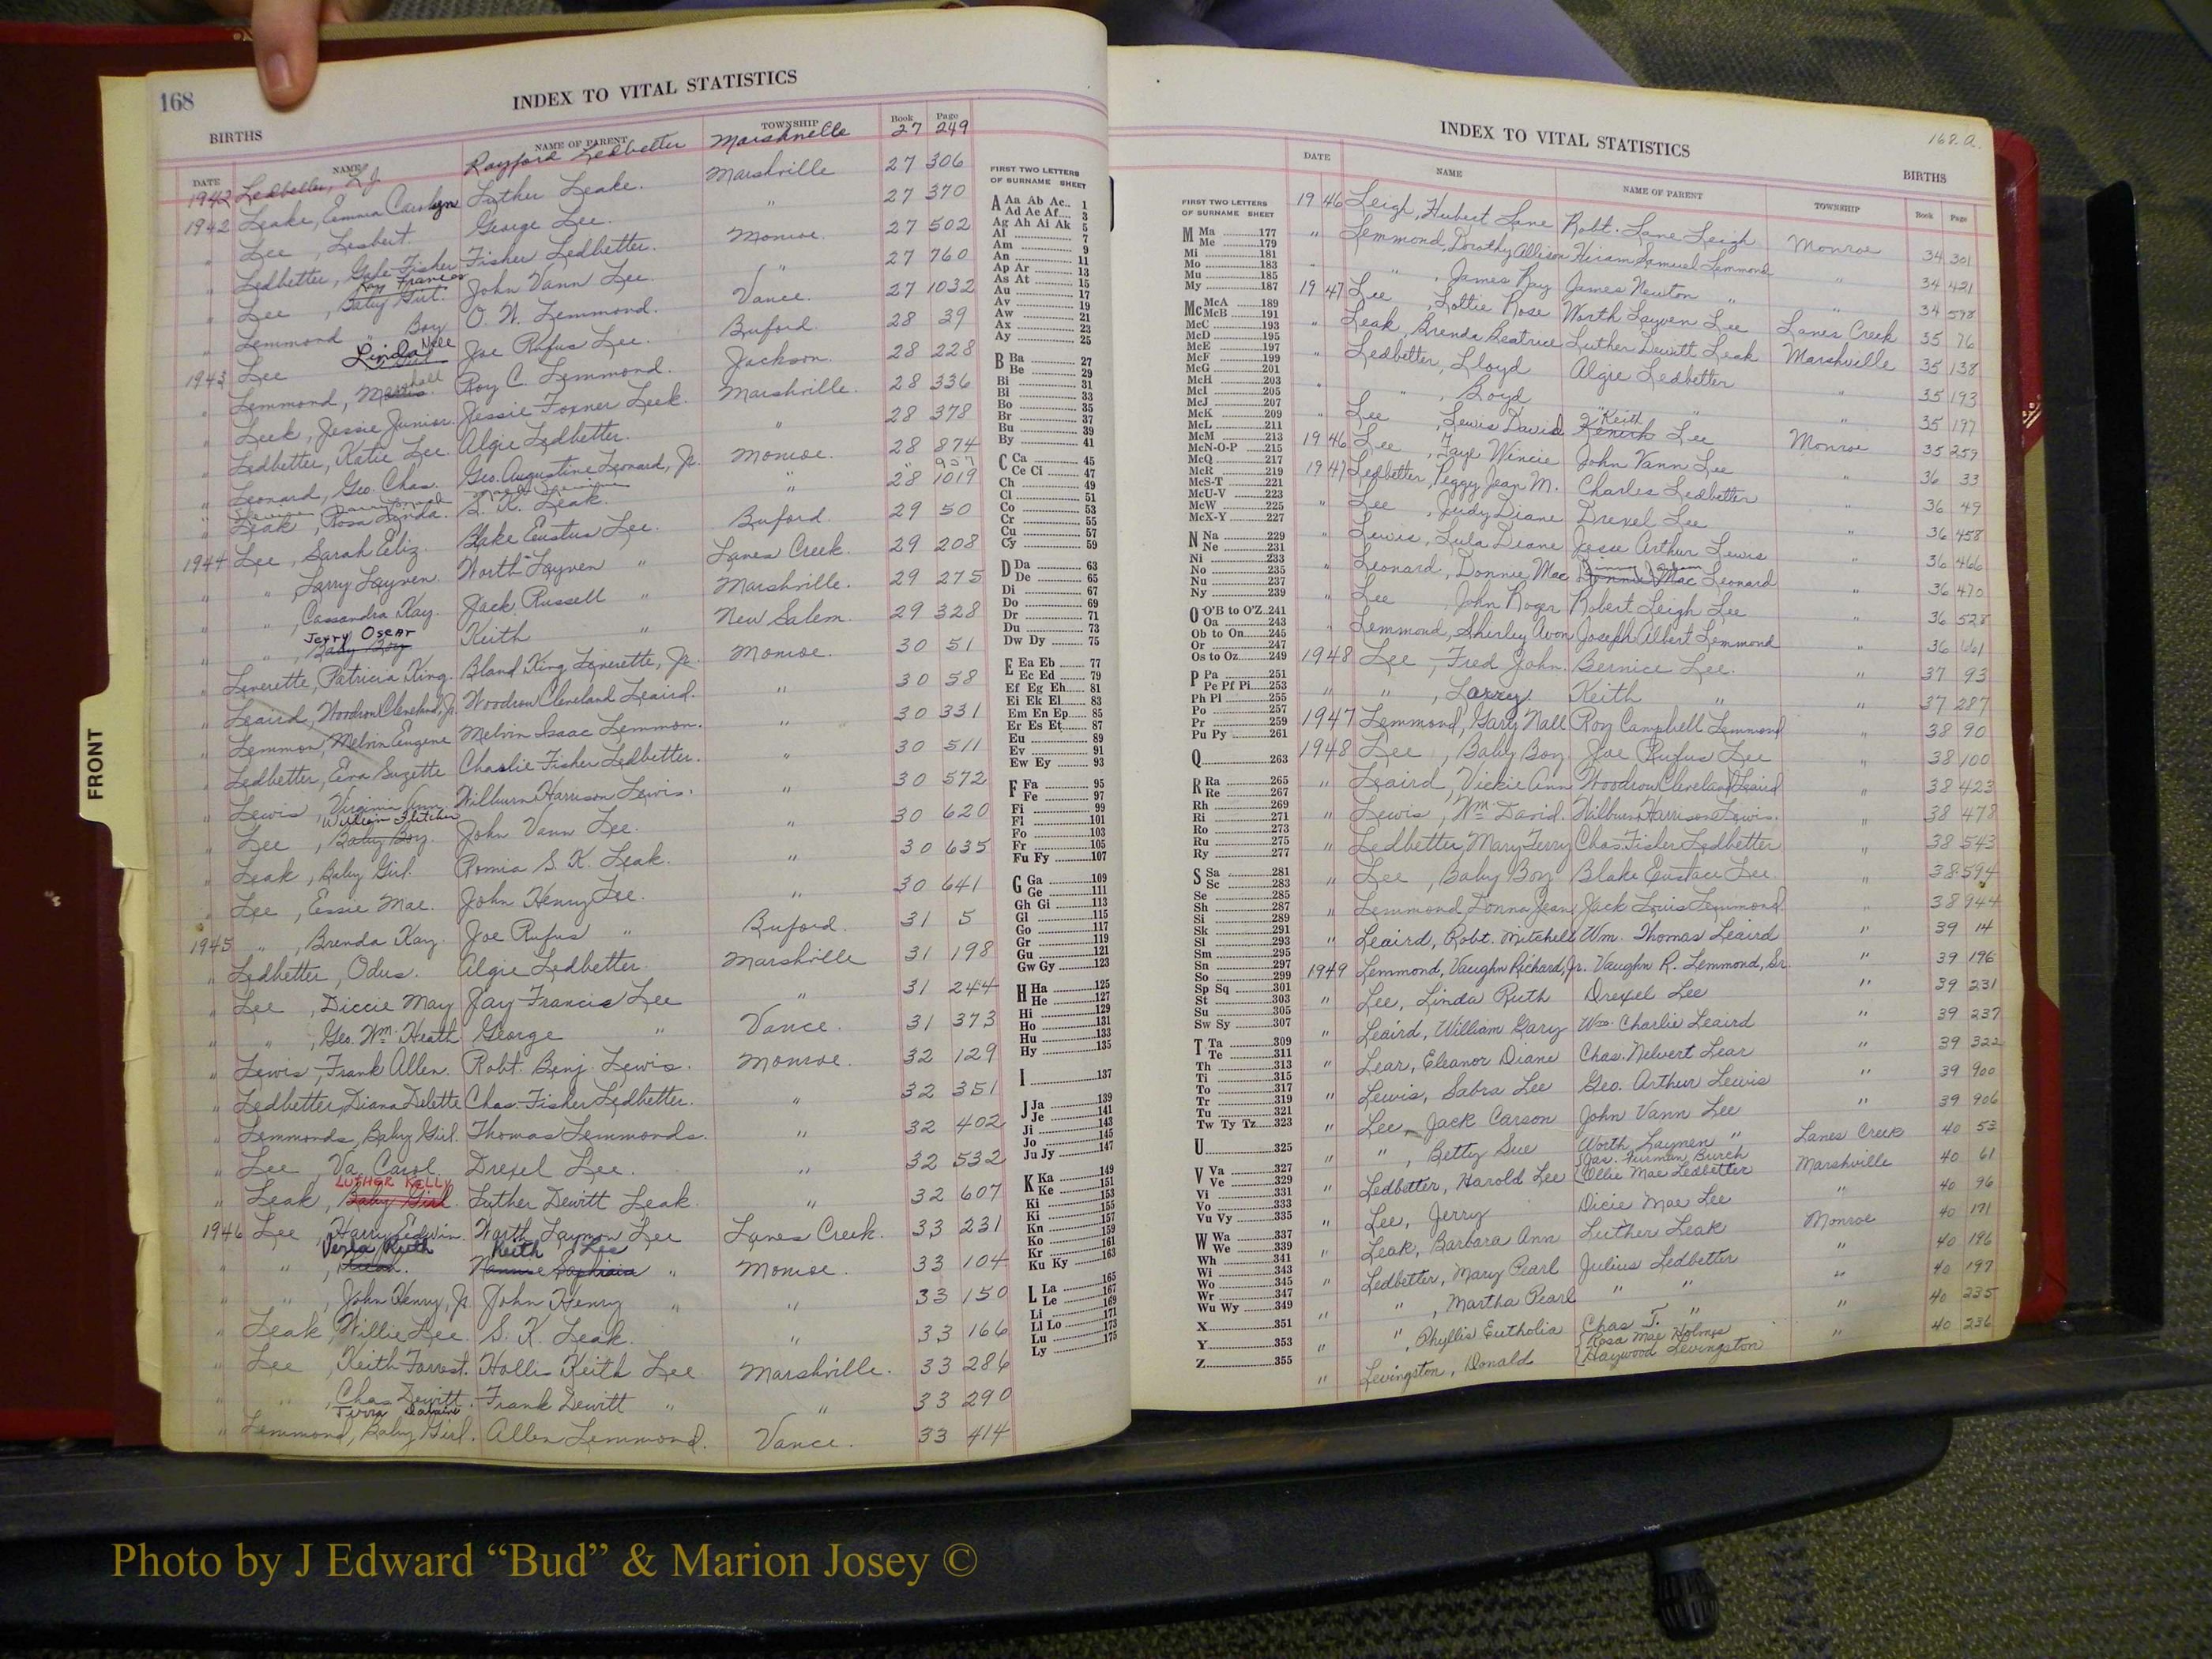 168
INDEX TO VITAL STATISTICS
BIRTHS
DATE NAME NAME OF PARENT TOWNSHIP Book Page
1942 Ledbetter, L.J. Rayford Ledbetter Marshville 27 249
1942 Leake, Emma Carolyn Luther Leake. Marshville 27 306
" Lee, Lesbert. George Lee. " 27 370
" Ledbetter, Gale Fisher Fisher Ledbetter. Monroe. 27 502
" Lee, Kay Frances Baby Girl. John Vann Lee " 27 760
" Lemmond " Boy O. W. Lemmond. Vance. 27 1032
1943 Lee Linda Nell Joe Rufus Lee. Buford 28 39
" Lemmond, Marshall Roy C. Lemmond. Jackson. 28 228
" Leek, Jessie Junior. Jessie Foxner Leek. Marshville. 28 336
" Ledbetter, Katie Lee. Algie Ledbetter. " 28 378
" Leonard, Geo. Chas. Geo. Augustine Leonard, Jr. Monroe. 28 874
" 937
" Leak, Rosa Linda. S. K. Leak. " 28 1019
1944 Lee, Sarah Eliz. Blake Eustus Lee. Buford. 29 50
" " Larry Layven. Worth Layven " Lanes Creek. 29 208
" ", Cassandra Kay. Jack Russell " Marshville. 29 275
" ", Jerry Oscar Baby Boy Keith " New Salem. 29 328
" Leverette, Patricia King. Bland King Leverette, Jr. Monroe. 30 51
" Leaird, Woodrow Cleveland, Jr. Woodrow Cleveland Leaird. " 30 58
" Lemmon, Melvin Eugene Melvin Isaac Lemmon. " 30 331
" Ledbetter, Eva Suzette Charlie Fisher Ledbetter. " 30 511
" Lewis, Virginia Ann. Wilburn Harrison Lewis. " 30 572
" Lee, William Fletcher Baby Boy. John Vann Lee. " 30 620
" Leak, Baby Girl. Romia S. K. Leak. " 30 635
" Lee, Essie Mae. John Henry Lee. " 30 641
1945 ", Brenda Kay. Joe Rufus " Buford. 31 5
" Ledbetter, Odus. Algie Ledbetter. Marshville 31 198
" Lee, Diccie May Jay Francis Lee " 31 244
" ", Geo. Wm. Heath George " Vance. 31 373
" Lewis, Frank Allen. Robt. Benj. Lewis. Monroe. 32 129
" Ledbetter, Diana Delette Chas. Fisher Ledbetter. " 32 351
" Lemmonds, Baby Girl. Thomas Lemmonds. " 32 402
" Lee, Va. Carol. Drexel Lee. " 32 532
" Leak, LUTHER KELLY Baby Girl. Luther Dewitt Leak. " 32 607
1946 Lee, Harry Edwin. Worth Laymon Lee Lanes Creek. 33 231
" ", Verla Ruth Keith Lee " Monroe. 33 104
" ", John Henry, Jr. John Henry " " 33 150
" Leak, Willie Lee. S. K. Leak. " 33 166
" Lee, Keith Forrest. Hollis Keith Lee Marshville. 33 286
" ", Chas Dewitt. Frank Dewitt " " 33 290
" Lemmond, Baby Girl. Allen Lemmond. Vance. 33 414
FIRST TWO LETTERS
OF SURNAME SHEET
A Aa Ab Ac.. 1
Ad Ae Af.... 3
Ag Ah Ai Ak 5
Al 7
Am 9
An 11
Ap Ar 13
As At 15
Au 17
Av 19
Aw 21
Ax 23
Ay 25
B Ba 27
Be 29
Bi 31
Bl 33
Bo 35
Br 37
Bu 39
By 41
C Ca 45
Ce Ci 47
Ch 49
Cl 51
Co 53
Cr 55
Cu 57
Cy 59
D Da 63
De 65
Di 67
Do 69
Dr 71
Du 73
Dw Dy 75
E Ea Eb 77
Ec Ed 79
Ef Eg Eh 81
Ei Ek El 83
Em En Ep 85
Er Es Et 87
Eu 89
Ev 91
Ew Ey 93
F Fa 95
Fe 97
Fi 99
Fl 101
Fo 103
Fr 105
Fu Fy 107
G Ga 109
Ge 111
Gh Gi 113
Gl 115
Go 117
Gr 119
Gu 121
Gw Gy 123
H Ha 125
He 127
Hi 129
Ho 131
Hu 133
Hy 135
I 137
J Ja 139
Je 141
Ji 143
Jo 145
Ju Jy 147
K Ka 149
Ke 151
Ki 153
Ki 155
Kn 157
Ko 159
Kr 161
Ku Ky 163
L La 165
Le 167
Li 169
Ll Lo 171
Lu 173
Ly 175
FRONT
168.a.
INDEX TO VITAL STATISTICS
BIRTHS
DATE NAME NAME OF PARENT TOWNSHIP Book Page
FIRST TWO LETTERS
OF SURNAME SHEET
M Ma 177
Me 179
Mi 181
Mo 183
Mu 185
My 187
Mc McA 189
McB 191
McC 193
McD 195
McE 197
McF 199
McG 201
McH 203
McI 205
McJ 207
McK 209
McL 211
McM 213
McN-O-P 215
McQ 217
McR 219
McS-T 221
McU-V 223
McW 225
McX-Y 227
N Na 229
Ne 231
Ni 233
No 235
Nu 237
Ny 239
O O'B to O'Z. 241
Oa 243
Ob to On 245
Or 247
Os to Oz 249
P Pa 251
Pe Pf Pi 253
Ph Pl 255
Po 257
Pr 259
Pu Py 261
Q 263
R Ra 265
Re 267
Rh 269
Ri 271
Ro 273
Ru 275
Ry 277
S Sa 281
Sc 283
Se 285
Sh 287
Si 289
Sk 291
Sl 293
Sm 295
Sn 297
So 299
Sp Sq 301
St 303
Su 305
Sw Sy 307
T Ta 309
Te 311
Th 313
Ti 315
To 317
Tr 319
Tu 321
Tw Ty Tz 323
U 325
V Va 327
Ve 329
Vi 331
Vo 333
Vu Vy 335
W Wa 337
We 339
Wh 341
Wi 343
Wo 345
Wr 347
Wu Wy 349
X 351
Y 353
Z 355
1946 Leigh, Hubert Lane Robt. Lane Leigh Monroe 34 301
" Lemmond, Dorothy Allison Hiram Samuel Lemmond " 34 421
" ", James Ray James Newton " " 34 598
1947 Lee, Lottie Rose Worth Layven Lee Lanes Creek 35 76
" Leak, Brenda Beatrice Luther Dewitt Leak Marshville 35 138
" Ledbetter, Lloyd Algie Ledbetter " 35 193
" ", Boyd " " 35 197
" Lee, Lewis David Keith Lee Monroe 35 259
1946 Lee, Faye Wincie John Vann Lee " 36 33
1947 Ledbetter, Peggy Jean M. Charles Ledbetter " 36 49
" Lee, Judy Diane Drexel Lee " 36 458
" Lewis, Lula Diane Jesse Arthur Lewis " 36 466
" Leonard, Donnie Mac Donnie Mac Leonard " 36 470
" Lee John Roger Robert Leigh Lee " 36 528
" Lemmond, Shirley Avon Joseph Albert Lemmond " 36 661
1948 Lee, Fred John. Bernice Lee. " 37 93
" ", Larry Keith " " 37 287
1947 Lemmond, Gary Nall Roy Campbell Lemmond " 38 90
1948 Lee, Baby Boy. Joe Rufus Lee " 38 100
" Leaird, Vickie Ann Woodrow Cleveland Leaird " 38 423
" Lewis, Wm. David. Wilburn Harrison Lewis. " 38 478
" Ledbetter, Mary Terry Chas. Fisher Ledbetter " 38 543
" Lee, Baby Boy Blake Eustace Lee. " 38 594
" Lemmond, Donna Jean Jack Louis Lemmond. " 38 944
" Leaird, Robt. Mitchell Wm. Thomas Leaird " 39 14
1949 Lemmond, Vaughn Richard, Jr. Vaughn R. Lemmond, Sr. " 39 196
" Lee, Linda Ruth Drexel Lee " 39 231
" Leaird, William Gary Wm. Charlie Leaird " 39 237
" Lear, Eleanor Diane Chas. Nelvert Lear " 39 322
" Lewis, Sabra Lee Geo. Arthur Lewis " 39 900
" Lee, Jack Carson John Vann Lee " 39 906
" ", Betty Sue Worth Laynen " Lanes Creek 40 53
" Ledbetter, Harold Lee {Jas. Furman Burch Ollie Mae Ledbetter Marshville 40 61
" Lee, Jerry Dicie Mae Lee " 40 96
" Leak, Barbara Ann Luther Leak Monroe 40 171
" Ledbetter, Mary Pearl Julius Ledbetter " 40 196
" ", Martha Pearl " " " 40 197
" ", Phyllis Eutholia Chas. T. " " 40 235
" Levingston, Donald {Rosa Mae Holmes Haywood Levingston " 40 236
Photo by J Edward “Bud” & Marion Josey ©